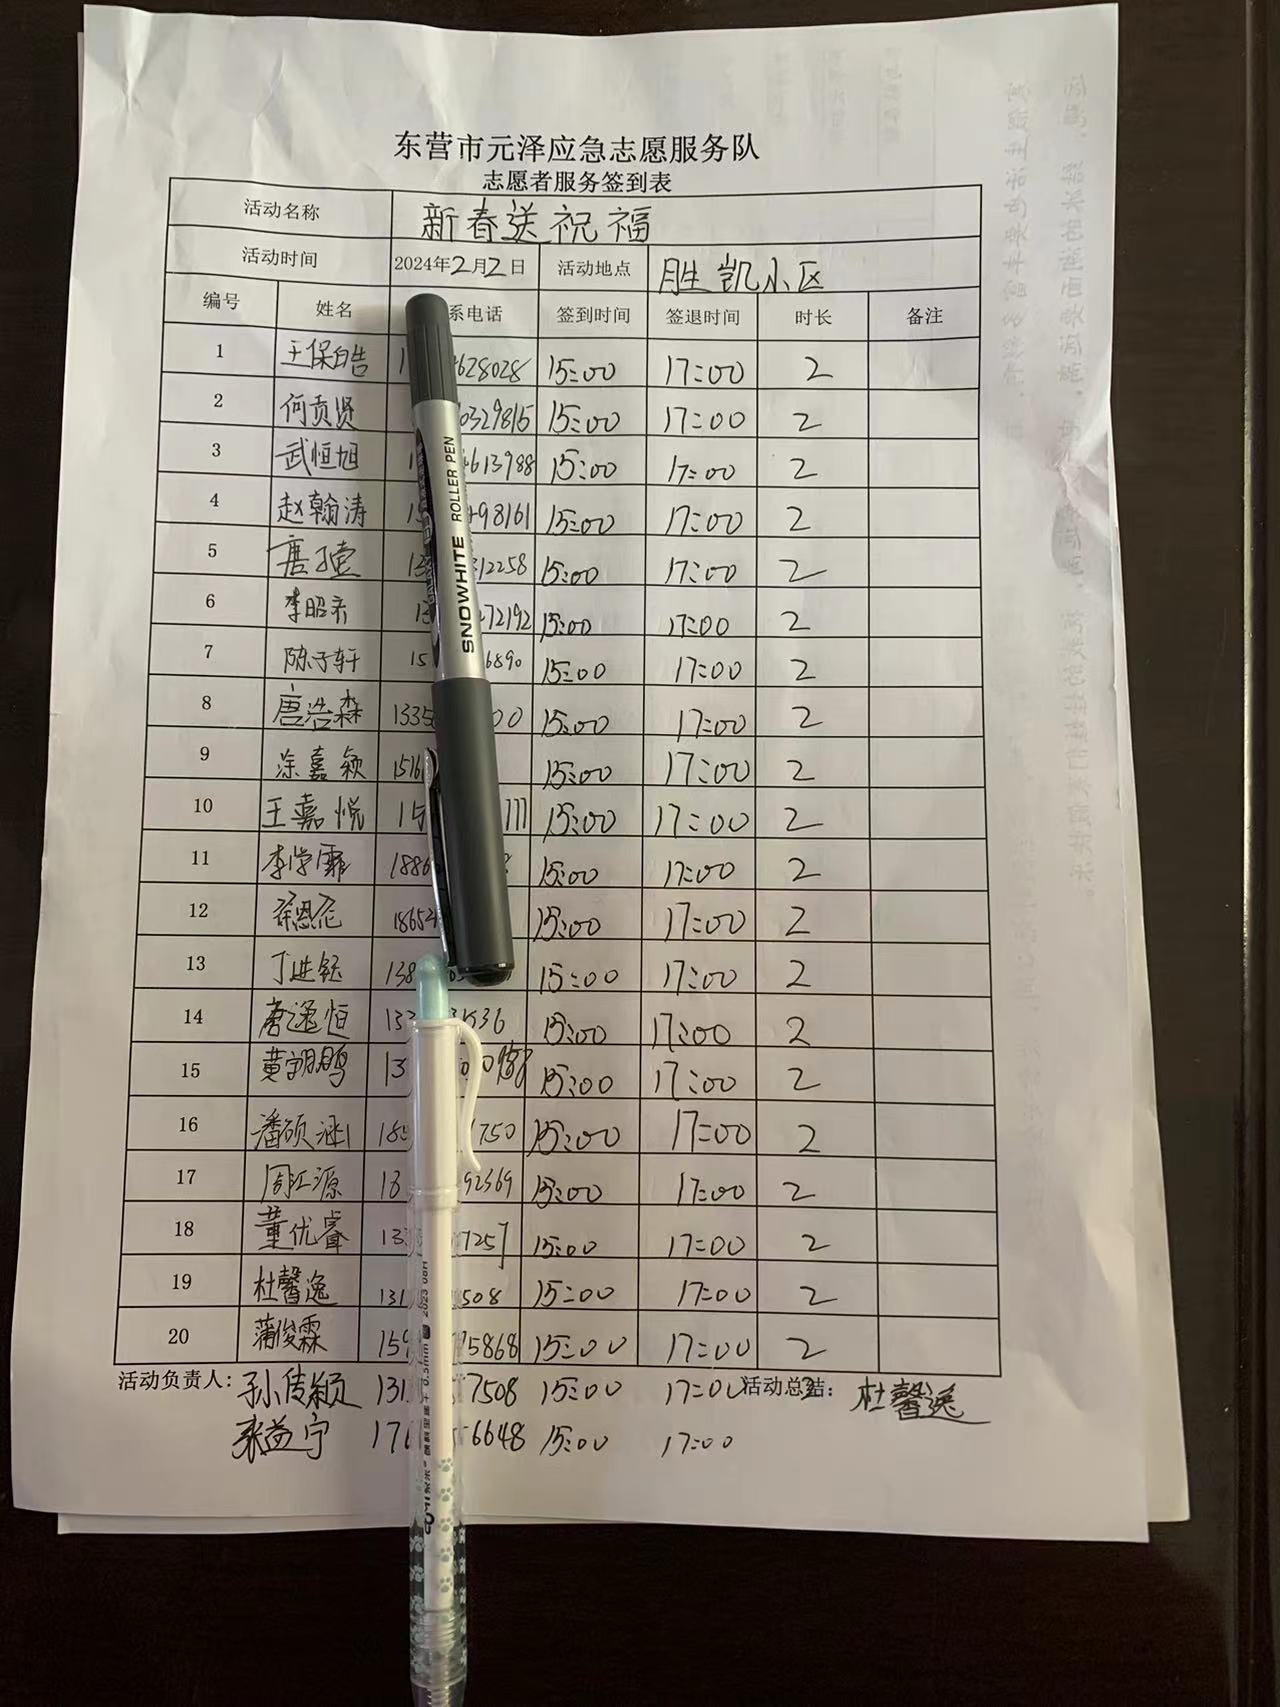 东营市元泽应急志愿服务队
志愿者服务签到表
活动名称 新春送祝福
活动时间 2024年2月2日 活动地点 胜凯小区
编号 姓名 系电话 签到时间 签退时间 时长 备注
1 王保皓 1 628028 15:00 17:00 2
2 何贡贤 0329815 15:00 17:00 2
3 武恒旭 1 4613988 15:00 17:00 2
4 赵翰涛 15 498161 15:00 17:00 2
5 唐 13 312258 15:00 17:00 2
6 李昭 13 472192 15:00 17:00 2
7 陈子轩 15 6890 15:00 17:00 2
8 唐浩森 1335 00 15:00 17:00 2
9 涂嘉颖 1516 15:00 17:00 2
10 王嘉悦 15 111 15:00 17:00 2
11 李学霏 1886 15:00 17:00 2
12 18654 15:00 17:00 2
13 丁进钰 138 15:00 17:00 2
14 唐逶恒 133 3536 15:00 17:00 2
15 黄 13 15:00 17:00 2
16 潘硕涵 18 1750 15:00 17:00 2
17 周江源 13 92369 15:00 17:00 2
18 董优睿 13 7257 15:00 17:00 2
19 杜馨逸 131 508 15:00 17:00 2
20 蒲俊霖 159 75868 15:00 17:00 2
活动负责人: 孙传颖 131 7508 15:00 17:00 2 活动总结: 杜馨逸
张益宁 176 56648 15:00 17:00
SNOWHITE ROLLER PEN